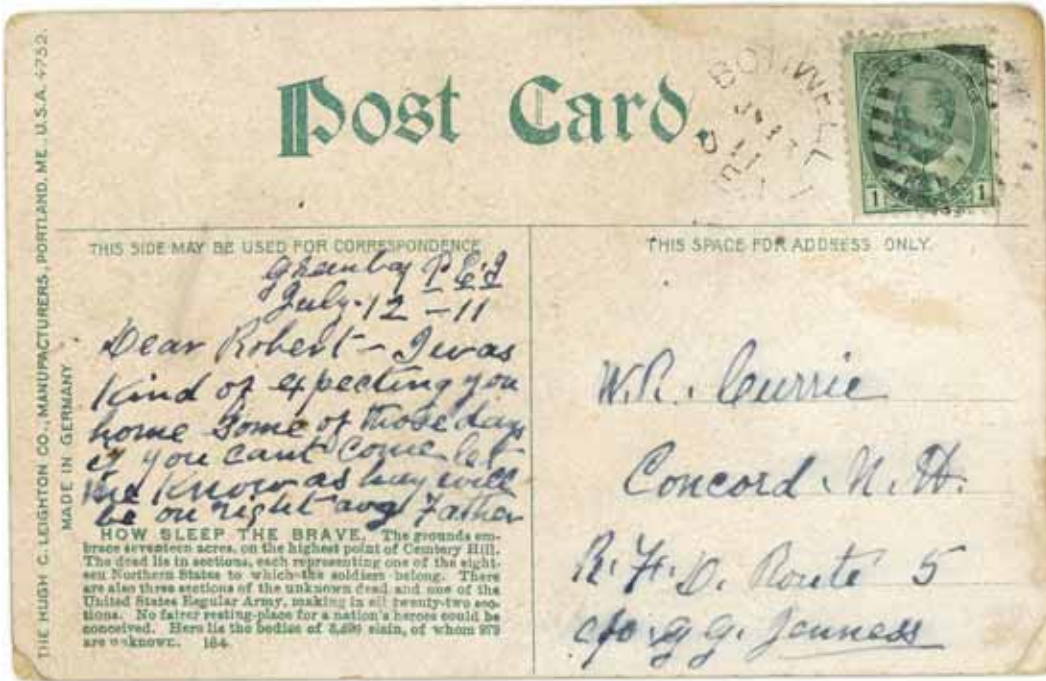 THE HUGH C. LEIGHTON CO., MANUFACTURERS, PORTLAND, ME., U.S.A. 4752.
MADE IN GERMANY
Post Card.
BOTHWELL
11
1 1
THIS SIDE MAY BE USED FOR CORRESPONDENCE
P.E.I
July-12-11
Dear Robert - I was
Kind of expecting you
home Some of those days
if you cant Come let
me Know as hay will
be on right Father
HOW SLEEP THE BRAVE. The grounds em-
brace seventeen acres, on the highest point of Cemtery Hill.
The dead lie in sections, each representing one of the eight-
een Northern States to which the soldiers belong. There
are also three sections of the unknown dead and one of the
United States Regular Army, making in all twenty-two sec-
tions. No fairer resting-place for a nation's heroes could be
conceived. Here lie the bodies of slain, of whom 979
are unknown. 164.
THIS SPACE FOR ADDRESS ONLY.
W.R. Currie
Concord. N.H.
R.F.D. Route 5
c/o G.G. Jenness